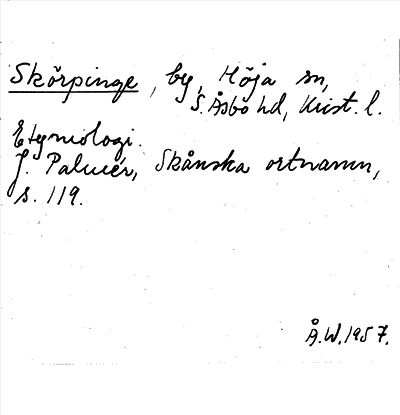 Skörpinge, by, Höja sn,
S. Åsbo hd, Krist. l.
Etymologi.
J. Palmér, Skånska ortnamn,
s. 119.
Å.W. 1957.